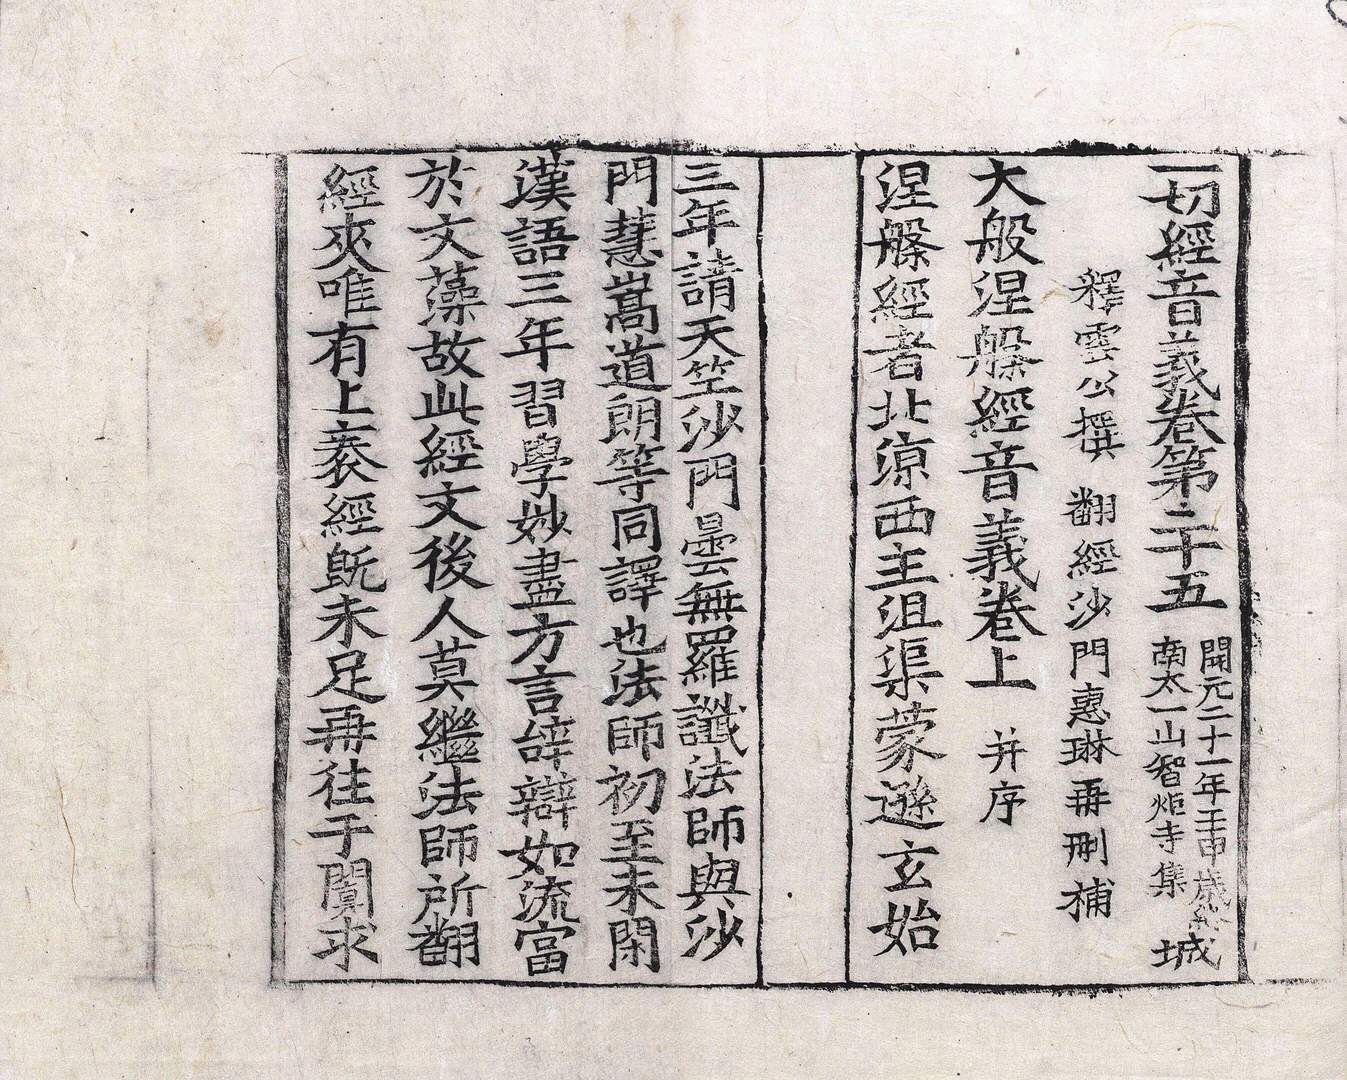 一切經音義卷第二十五 開元二十一年壬申歲終南太一山智炬寺集 城
釋雲公撰 翻經沙門惠琳再刪補
大般涅槃經音義卷上 并序
涅槃經者北涼西主沮渠蒙遜玄始
三年請天竺沙門曇無羅讖法師與沙
門慧嵩道朗等同譯也法師初至未閑
漢語三年習學妙盡方言辞辯如流富
於文藻故此經文後人莫繼法師所翻
經夾唯有上袠經旣未足再往于闐求